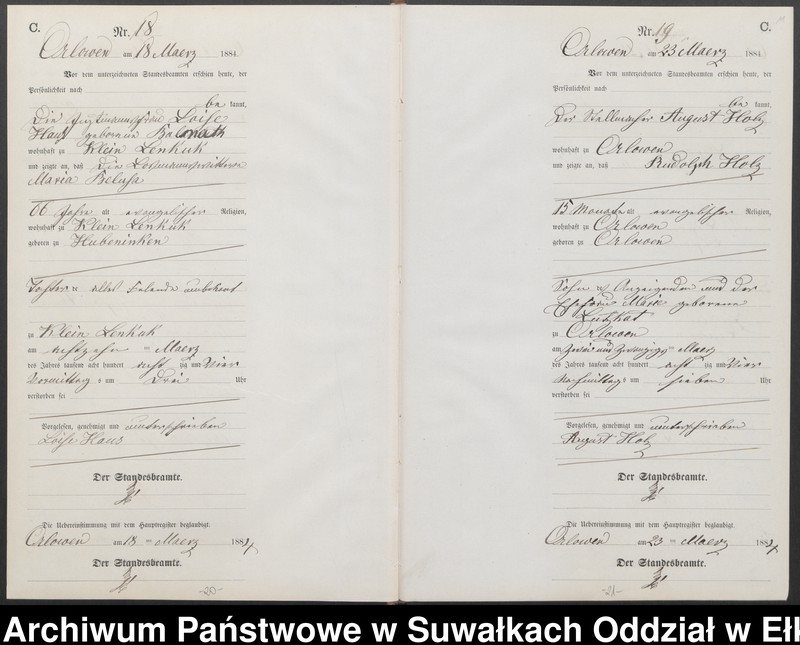 C.
Nr. 18
Orlowen am 18 Maerz 1884.
Vor dem unterzeichneten Standesbeamten erschien heute, der
Persönlichkeit nach
be kannt,
Die Loise
Haus geborene
wohnhaft zu Klein Lenkuk
und zeigte an, daß die
Maria Belusa
66 Jahre alt evangelischer Religion,
wohnhaft zu Klein Lenkuk
geboren zu Hubeninken
Tochter
zu Klein Lenkuk
am achtzehn ten Maerz
des Jahres tausend acht hundert acht zig und vier
Vormittags um Drei Uhr
verstorben sei
Vorgelesen, genehmigt und unterschrieben
Loise Haus
Der Standesbeamte.
Die Uebereinstimmung mit dem Hauptregister beglaubigt.
Orlowen am 18 ten Maerz 1884
Der Standesbeamte.
-20-
C.
Nr. 19
Orlowen am 23 Maerz 1884
Vor dem unterzeichneten Standesbeamten erschien heute, der
Persönlichkeit nach
be kannt,
Der Stellmacher August Holz
wohnhaft zu Orlowen
und zeigte an, daß Rudolph Holz
15 Monate alt evangelischer Religion,
wohnhaft zu Orlowen
geboren zu Orlowen
Sohn des Anzeigenden und der
Ehefrau Marie geborene
zu Orlowen
am zwei und zwanzigsten Maerz
des Jahres tausend acht hundert acht zig und vier
Nachmittags um sieben Uhr
verstorben sei
Vorgelesen, genehmigt und unterschrieben
August Holz
Der Standesbeamte.
Die Uebereinstimmung mit dem Hauptregister beglaubigt.
Orlowen am 23 ten Maerz 1884
Der Standesbeamte.
-21-
Archiwum Państwowe w Suwałkach Oddział w Ełk